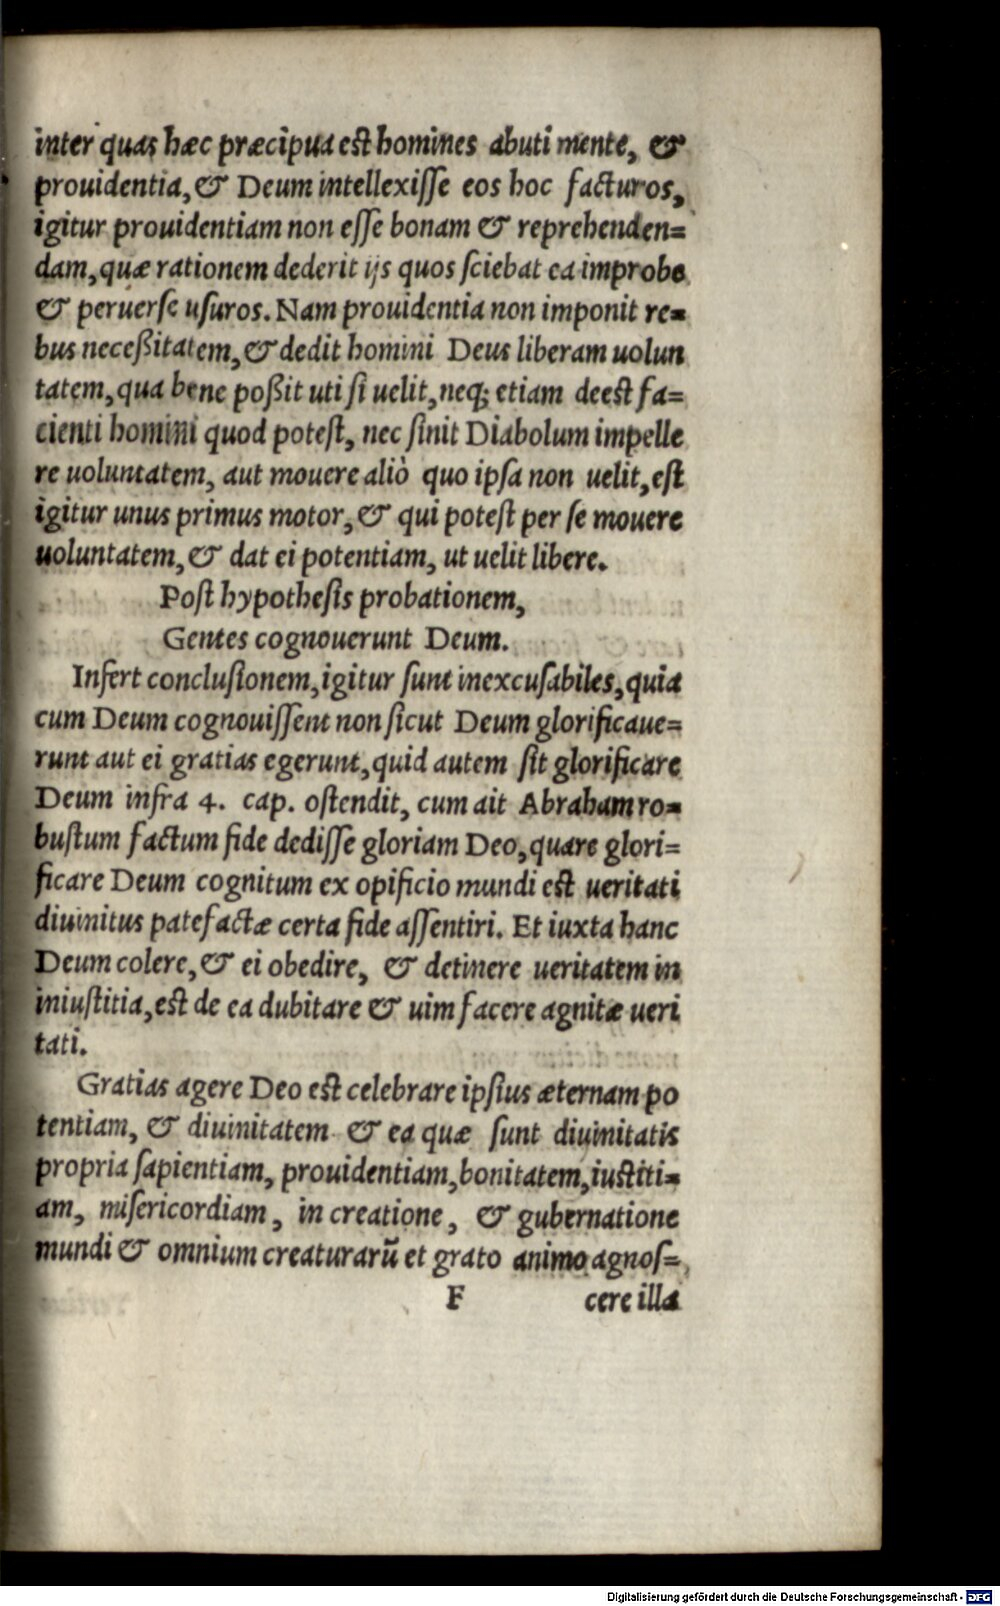 inter quas hæc præcipua est homines abuti mente, &
prouidentia, & Deum intellexiſſe eos hoc facturos,
igitur prouidentiam non eſſe bonam & reprehenden=
dam, quæ rationem dederit ijs quos ſciebat ea improbe
& peruerſe uſuros. Nam prouidentia non imponit re=
bus neceßitatem, & dedit homini Deus liberam uolun
tatem, qua bene poßit uti ſi uelit, neq; etiam deest fa=
cienti homini quod poteſt, nec ſinit Diabolum impelle
re uoluntatem, aut mouere aliò quo ipſa non uelit, eſt
igitur unus primus motor, & qui poteſt per ſe mouere
uoluntatem, & dat ei potentiam, ut uelit libere.
Poſt hypotheſis probationem,
Gentes cognouerunt Deum.
Infert concluſionem, igitur ſunt inexcuſabiles, quia
cum Deum cognouiſſent non ſicut Deum glorificaue=
runt aut ei gratias egerunt, quid autem ſit glorificare
Deum infra 4. cap. oſtendit, cum ait Abraham ro=
buſtum factum fide dediſſe gloriam Deo, quare glori=
ficare Deum cognitum ex opificio mundi est ueritati
diuinitus patefactæ certa fide aſſentiri. Et iuxta hanc
Deum colere, & ei obedire, & detinere ueritatem in
iniuſtitia, est de ea dubitare & uim facere agnitæ ueri
tati.
Gratias agere Deo est celebrare ipſius æternam po
tentiam, & diuinitatem & ea quæ ſunt diuinitatis
propria ſapientiam, prouidentiam, bonitatem, iustiti=
am, miſericordiam, in creatione, & gubernatione
mundi & omnium creaturarũ et grato animo agnoſ=
F cere illa
Digitalisierung gefördert durch die Deutsche Forschungsgemeinschaft - DFG